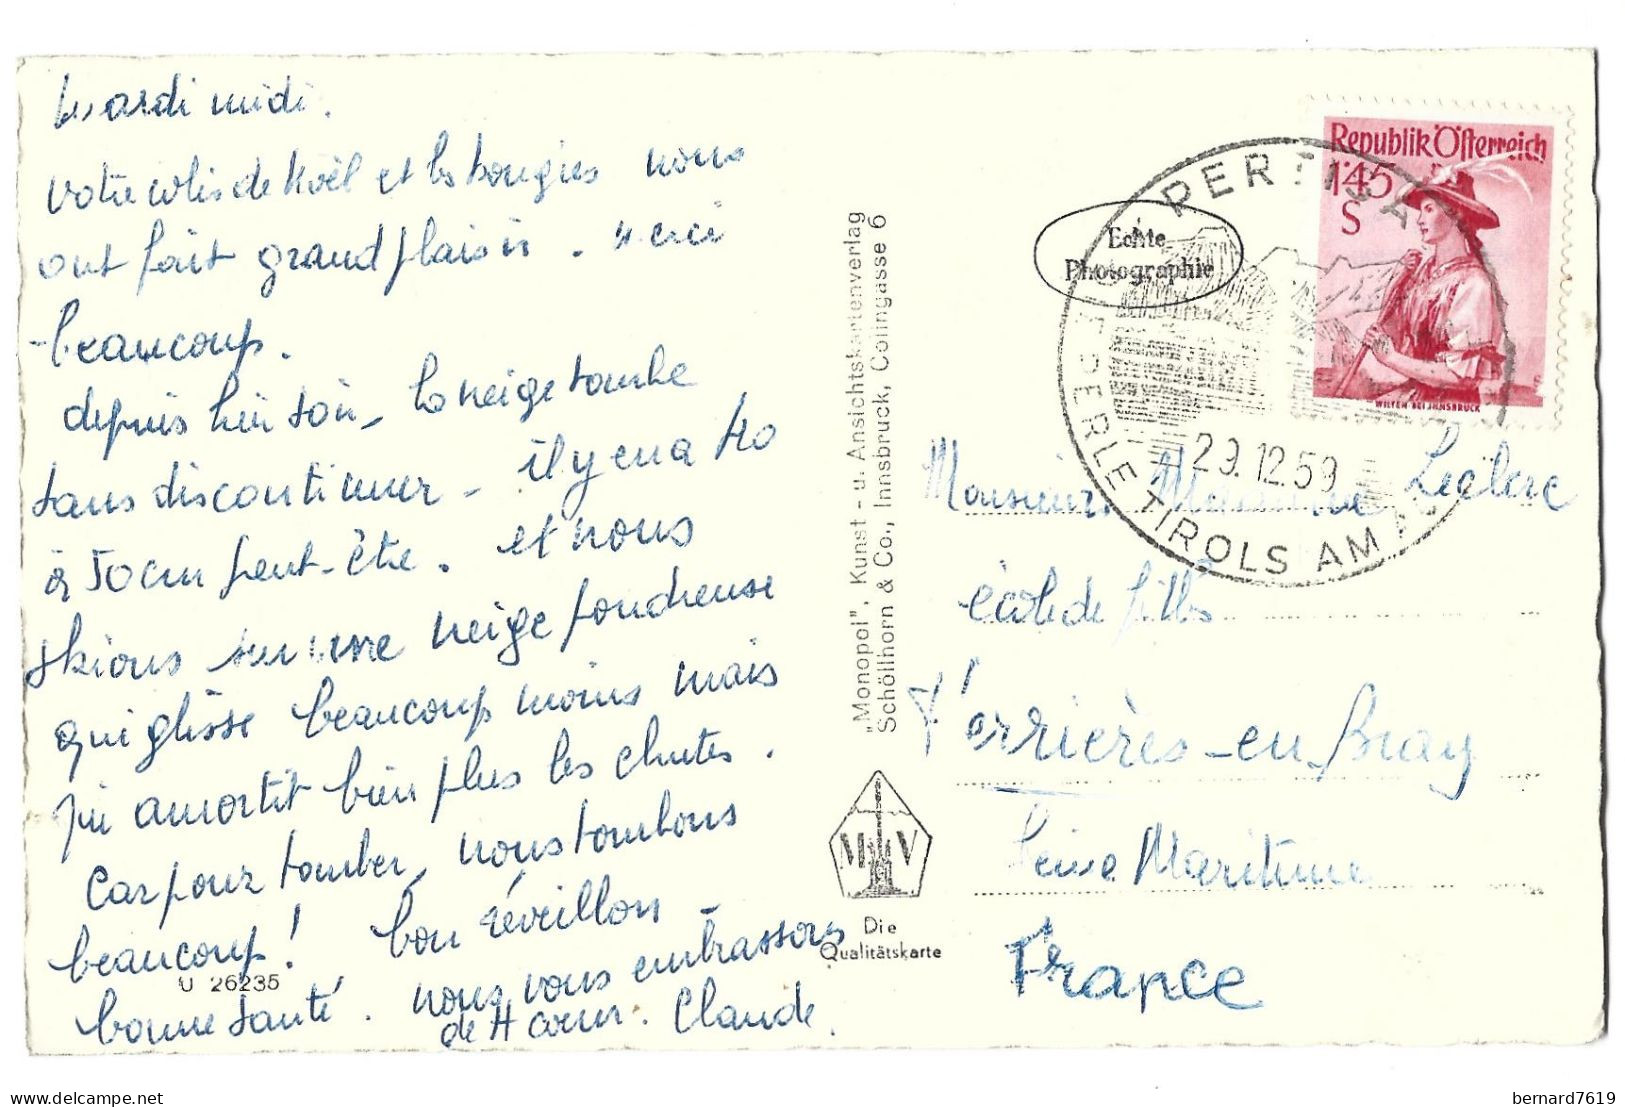 Mardi midi.
votre colis de Noël et les bougies nous
ont fait grand plaisir. Merci
beaucoup.
depuis hier soir, la neige tombe
sans discontinuer - il y en a 40
à 50 cm peut-être. et nous
skions sur une neige poudreuse
qui glisse beaucoup moins mais
qui amortit bien plus les chutes.
Car pour tomber, nous tombons
beaucoup! bon réveillon -
bonne santé. nous vous embrassons
de tt coeur. Claude.
U 26235
"Monopol", Kunst - u. Ansichtskartenverlag
Schöllhorn & Co., Innsbruck, Colingasse 6
M V
Die
Qualitätskarte
Echte
Photographie
PERTISAU
PERLE TIROLS AM
29.12.59
Republik Österreich
1'45
S
WILTEN BEI INNSBRUCK
Monsieur Madame Leclerc
école de filles
Ferrières-en-Bray
Seine Maritime
France
bernard7619